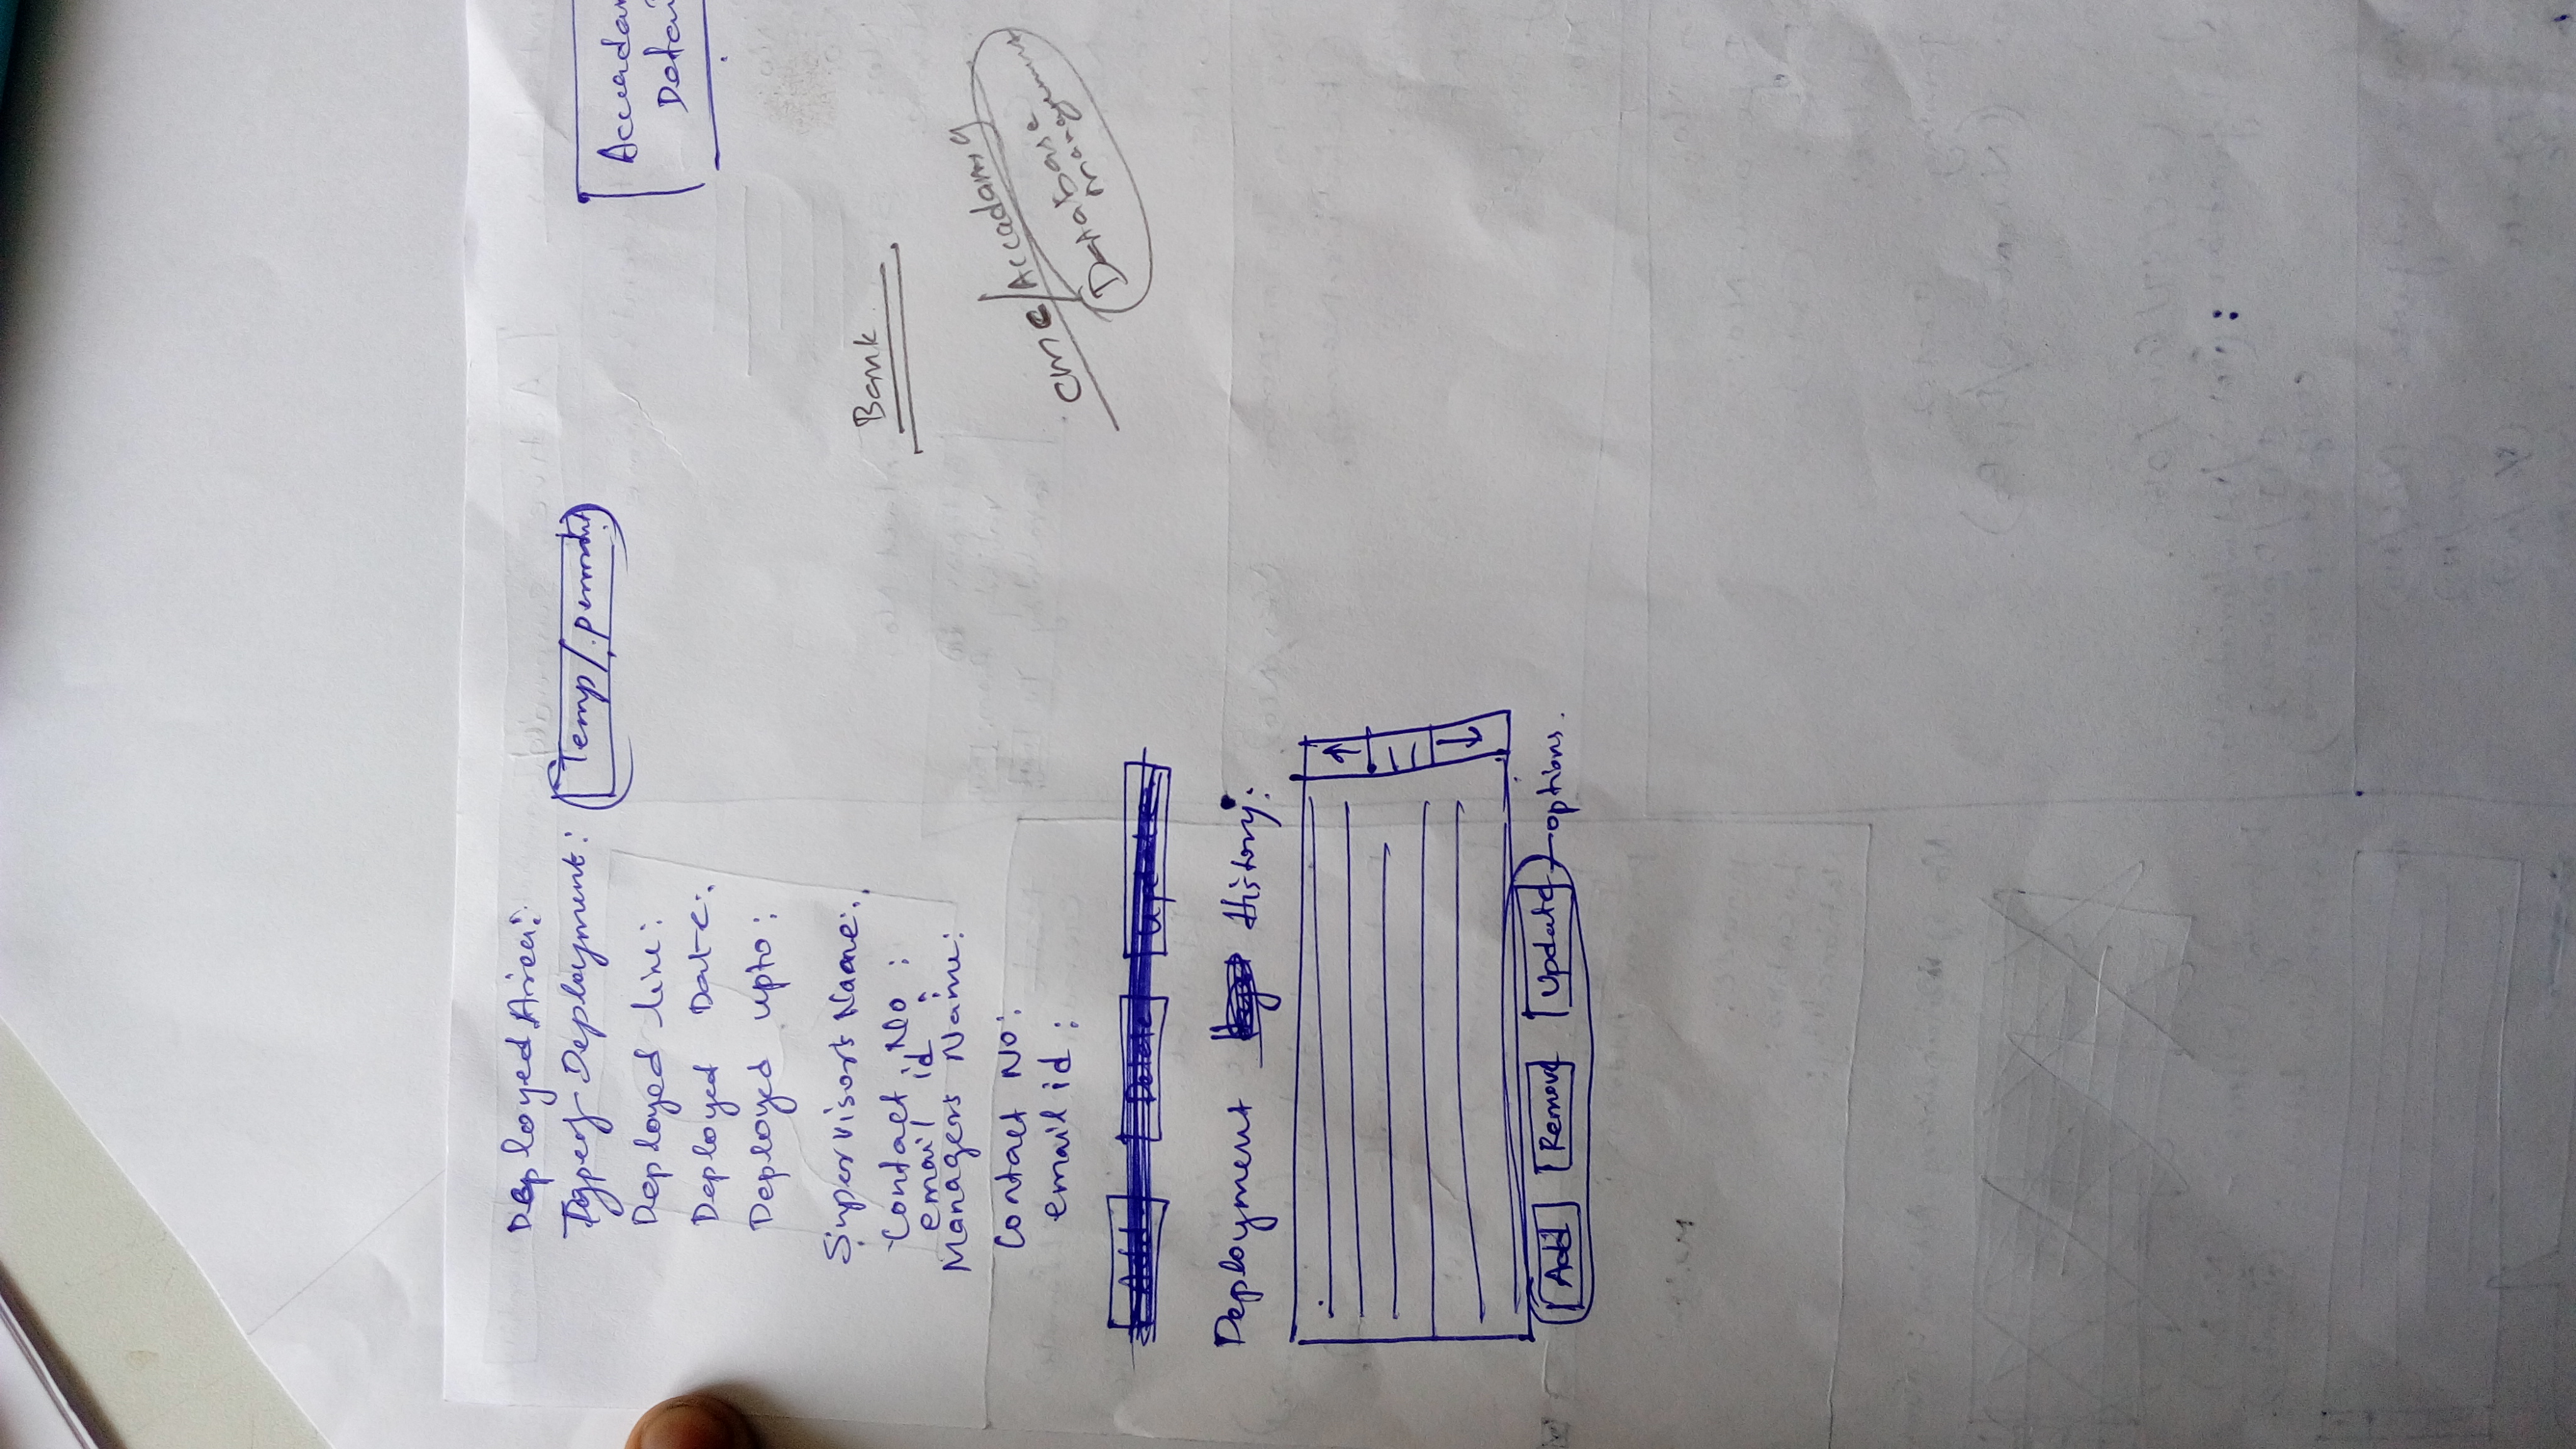 Deployed Area:
Type of Deployment: Temp/
Deployed line:
Deployed Date:
Deployed upto:
Supervisors Name:
Contact No:
email id:
Managers Name:
Contact No:
email id:
Add Delete Update
Deployment History:
Add Remove Update options.
Bank
cme/Accadamy
Database
Management